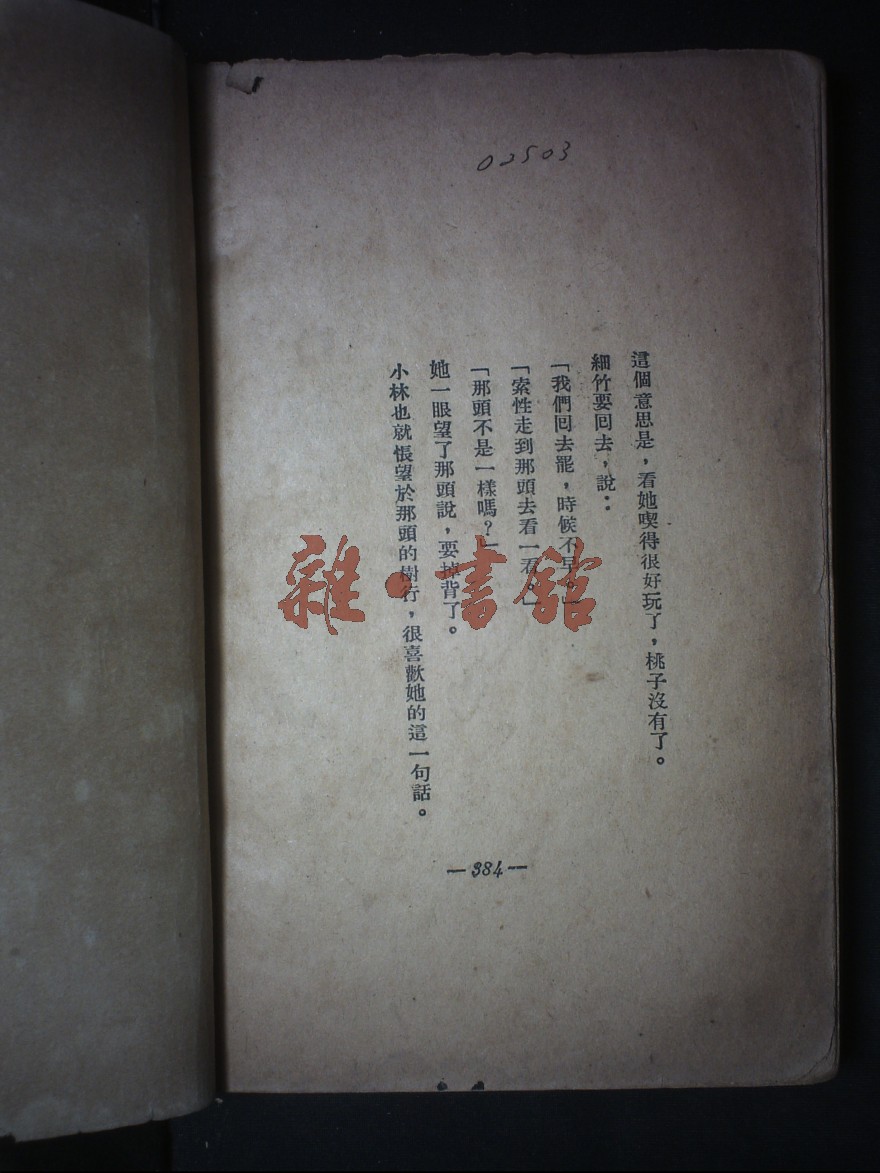 02503
這個意思是，看她喫得很好玩了，桃子沒有了。
細竹要回去，說：
「我們回去罷，時候不早。」
「索性走到那頭去看一看。」
「那頭不是一樣嗎？」
她一眼望了那頭說，要掉背了。
小林也就悵望於那頭的樹行，很喜歡她的這一句話。
—384—
雜·書館